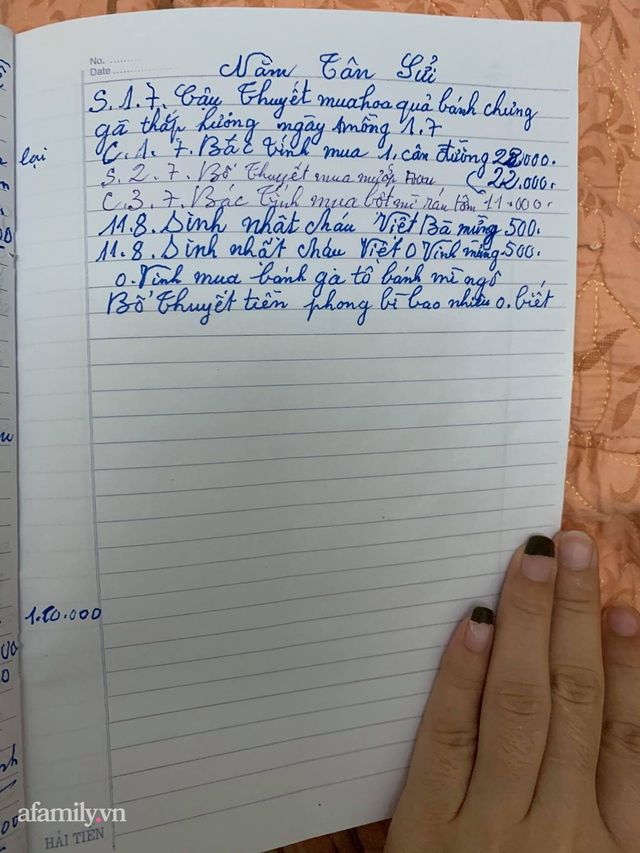 No. ........
Date ..............
Năm Tân Sửi
S.1.7. Cậu Thuyết mua hoa quả bánh chưng
gà thắp hương ngày mồng 1.7
lại
C.1.7. Bác Tính mua 1 cân đường 22.000.
S.2.7. Bố Thuyết mua mướp rau 22.000.
C.3.7. Bác Tính mua bột mì rán tôm 11.000.
11.8. Sinh nhật cháu Việt Bà mừng 500.
11.8. Sinh nhất cháu Việt O Vinh mừng 500.
O. Vinh mua bánh ga tô bánh mì ngô
Bố Thuyết tiền phong bì bao nhiêu o. biết
1.20.000
afamily.vn
HẢI TIẾN